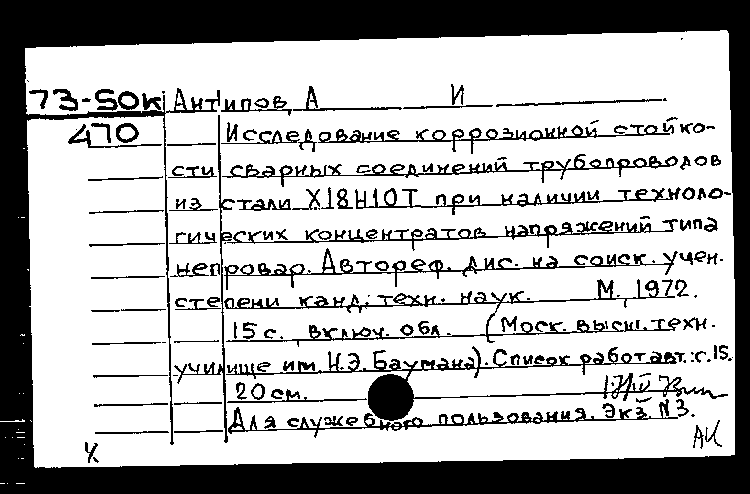 73-50к Антипов, А И
470 Исследование коррозионной стойко-
сти сварных соединений трубопроводов
из стали Х18Н10Т при наличии техноло-
гических концентратов напряжений типа
непровар. Автореф. дис. на соиск. учен.
степени канд. техн. наук. М., 1972.
15 с., включ. обл. (Моск. высш. техн.
училище им. Н.Э. Баумана). Список работ авт.: с. 15.
20 см.
Для служебного пользования. Экз. №3.
АК